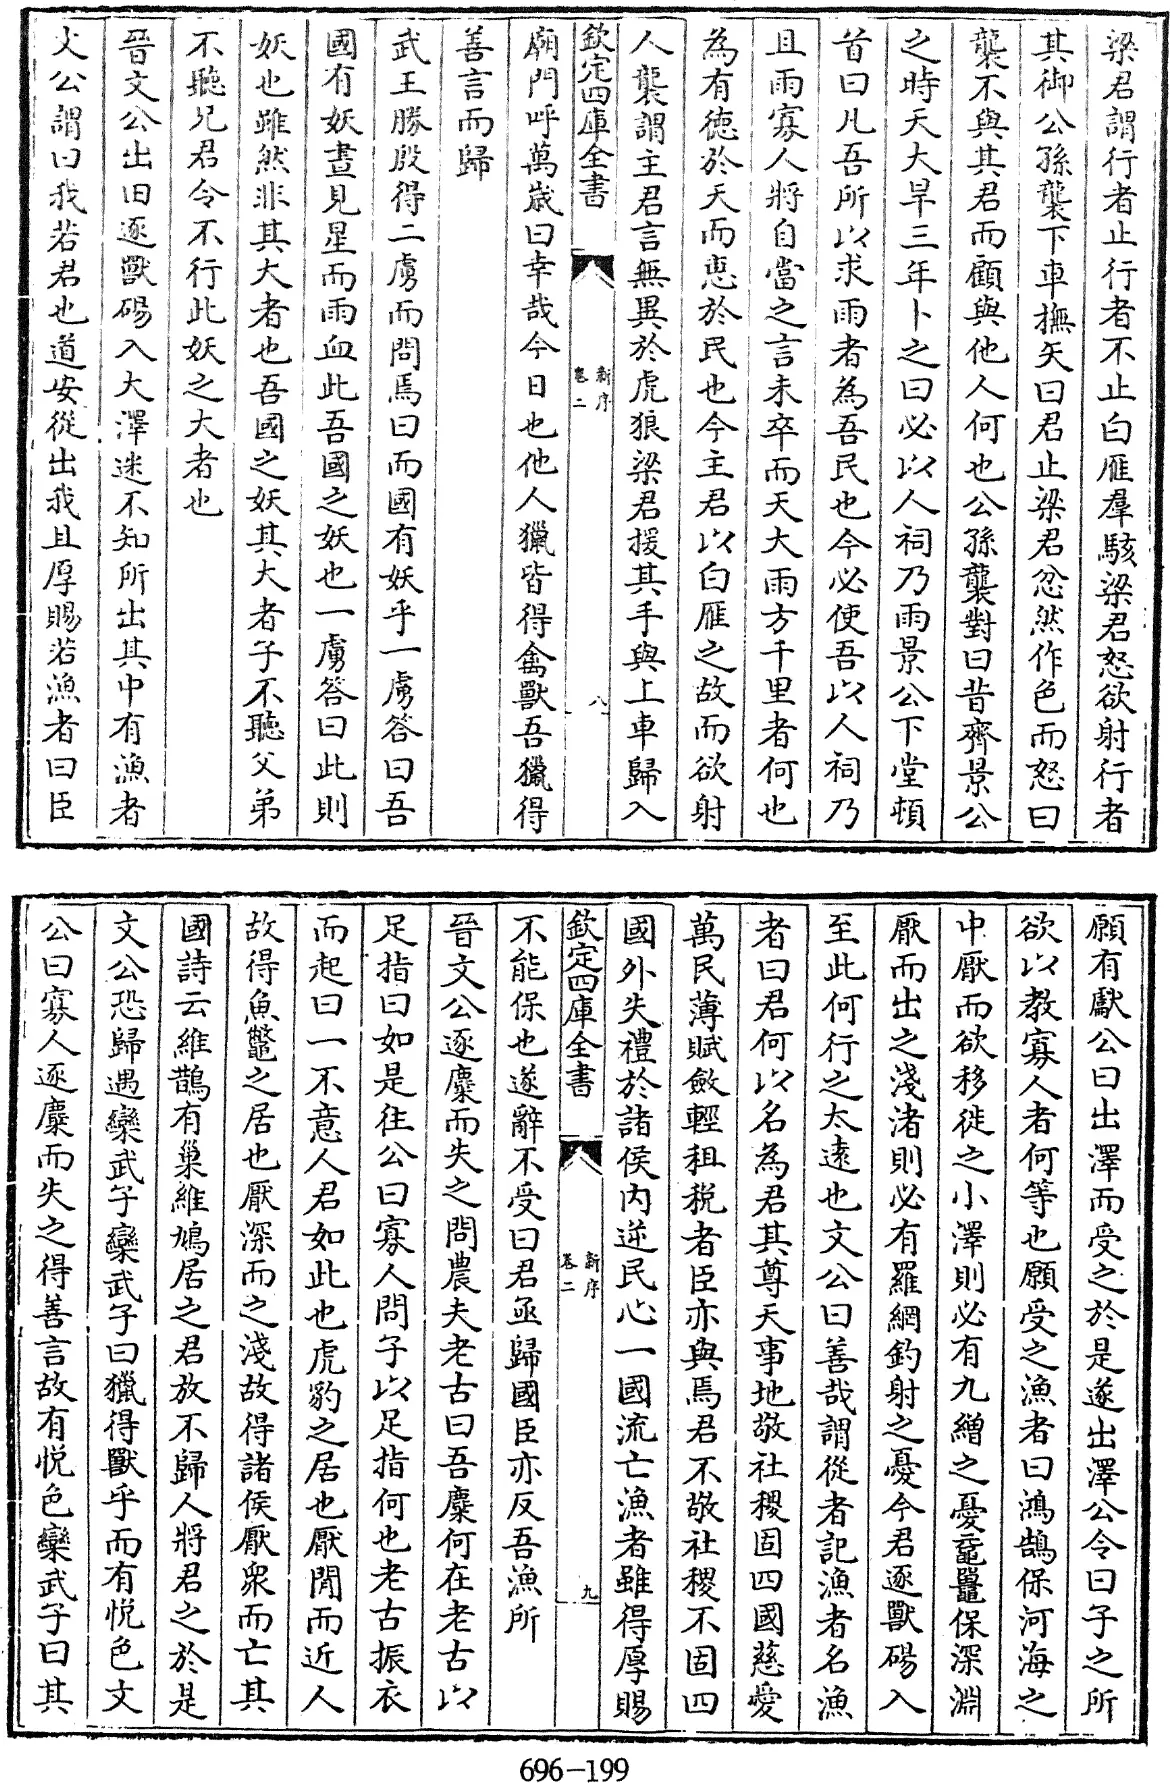 梁君謂行者止行者不止白雁羣駭梁君怒欲射行者
其御公孫襲下車撫矢曰君止梁君忿然作色而怒曰
襲不與其君而顧與他人何也公孫襲對曰昔齊景公
之時天大旱三年卜之曰必以人祠乃雨景公下堂頓
首曰凡吾所以求雨者為吾民也今必使吾以人祠乃
且雨寡人將自當之言未卒而天大雨方千里者何也
為有德於天而恵於民也今主君以白雁之故而欲射
人襲謂主君言無異於虎狼梁君援其手與上車歸入
欽定四庫全書
新序
卷二
八
廟門呼萬歲曰幸哉今日也他人獵皆得禽獸吾獵得
善言而歸
武王勝殷得二虜而問焉曰而國有妖乎一虜答曰吾
國有妖晝見星而雨血此吾國之妖也一虜答曰此則
妖也雖然非其大者也吾國之妖其大者子不聽父弟
不聽兄君令不行此妖之大者也
晉文公出田逐獸碭入大澤迷不知所出其中有漁者
文公謂曰我若君也道安從出我且厚賜若漁者曰臣
願有獻公曰出澤而受之於是遂出澤公令曰子之所
欲以教寡人者何等也願受之漁者曰鴻鵠保河海之
中厭而欲移徙之小澤則必有九繒之憂黿鼉保深淵
厭而出之淺渚則必有羅網釣射之憂今君逐獸碭入
至此何行之太遠也文公曰善哉謂從者記漁者名漁
者曰君何以名為君其尊天事地敬社稷固四國慈愛
萬民薄賦斂輕租稅者臣亦與焉君不敬社稷不固四
國外失禮於諸侯内逆民心一國流亡漁者雖得厚賜
欽定四庫全書
新序
卷二
九
不能保也遂辭不受曰君亟歸國臣亦反吾漁所
晉文公逐麋而失之問農夫老古曰吾麋何在老古以
足指曰如是往公曰寡人問子以足指何也老古振衣
而起曰一不意人君如此也虎豹之居也厭閒而近人
故得魚鼈之居也厭深而之淺故得諸侯厭衆而亡其
國詩云維鵲有巢維鳩居之君放不歸人將君之於是
文公恐歸遇欒武子欒武子曰獵得獸乎而有悦色文
公曰寡人逐麋而失之得善言故有悦色欒武子曰其
696-199